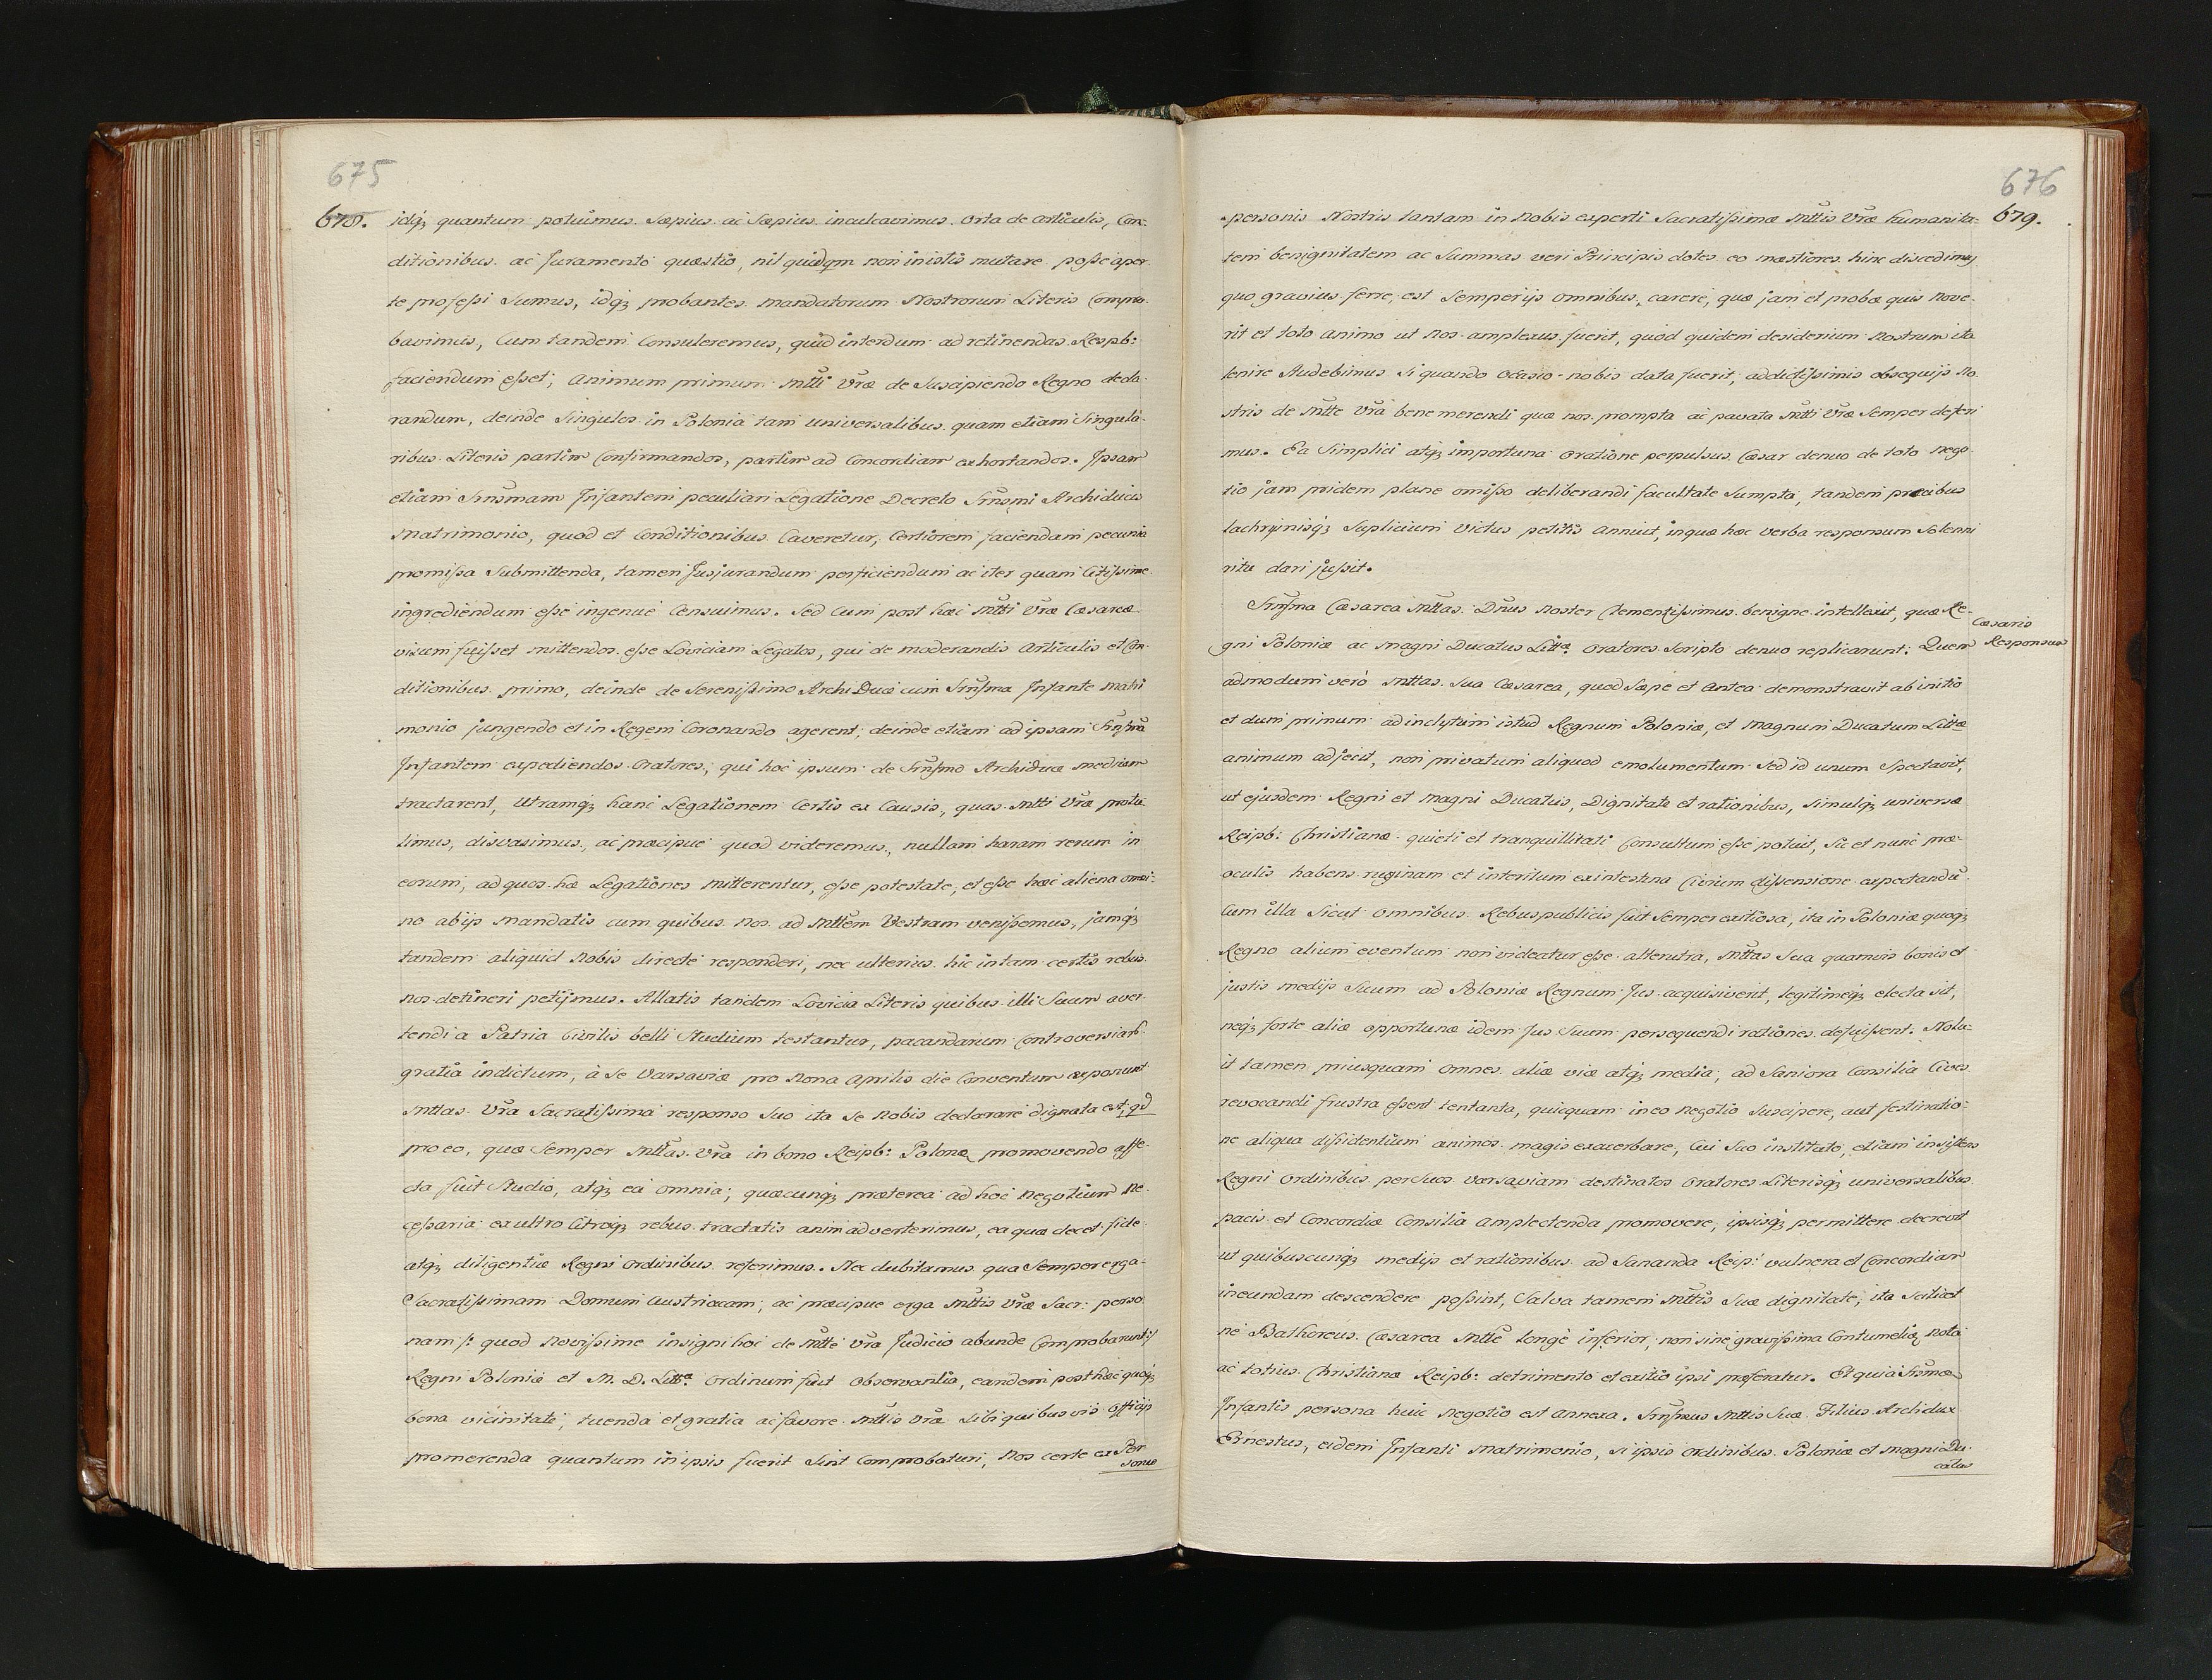 675
678. idq; quantum potuimus Sæpius ac Sæpius inculcavimus. Orta de articulis, Con-
ditionibus ac Juramento quæstio, nil quidqm non in istis mutare posse aper
te professi Sumus, idq; probantes mandatorum Nostrorum Literis Compro-
bavimus, Cum tandem Consuleremus, quid interdum ad retinendas Respb:
faciendum esset; animum primum Mtti Vræ de Suscipiendo Regno decla-
randum, deinde Singulos in Polonia tam universalibus quam etiam Singula-
ribus Literis partim Confirmandos, partim ad Concordiam exhortandos. Ipsam
etiam Srnsmam Infantem peculiari Legatione Decreto Srnsmi Archiducis
Matrimonio, quod et Conditionibus Caveretur, Certiorem faciendam pecunia
promissa Submittenda, tamen Jusjurandum perficiendum ac iter quam Citissime
ingrediendum esse ingenue Censuimus. Sed cum post hæc Mtti Vræ Cæsareæ
visum fuisset mittendos esse Loviciam Legatos, qui de moderandis Articulis et Con-
ditionibus primo, deinde de Serenissimo Archi Duci cum Srnsma Infante matri
monio jungendo et in Regem Coronando agerent, deinde etiam ad ipsam Srnsma
Infantem expediendos Oratores, qui hoc ipsum de Srnsmo Archiduce medium
tractarent, Utramq; hanc Legationem Certis ex Causis, quas Mtti Vræ protu-
limus, disvasimus, ac præcipue quod videremus, nullam harum rerum in
eorum, ad quos hæ Legationes mitterentur, esse potestate, et esse hæc aliena omni-
no ab ijs Mandatis cum quibus nos ad Mttem Vestram venissemus, jamq;
tandem aliquid Nobis directe responderi, nec ulterius hic in tam certis rebus
nos detineri petijmus. Allatis tandem Lovicia Literis quibus illi Suum aver-
tendi a Patria Civilis belli Studium testantur, pacandarum Controversiarū
gratia indictum, à Se Varsaviæ pro Nona Aprilis die Conventum exponunt
Mttas Vra Sacratissima responso Suo ita Se Nobis declarare dignata est, qd
pro eo, quæ Semper Mttas Vra in bono Reipb: Polonæ promovendo affe-
cta fuit Studio, atq; ea omnia, quæcunq; præterea ad hoc Negotium Ne-
cessaria ex ultro Citroq; rebus tractatis animadverterimus, ea qua decet fide
atq; diligentia Regni Ordinibus referimus. Nec dubitamus qua Semper erga
Sacratissimam Domum Austriacam, ac præcipue erga Mttis Vræ Sacr: perso
nam /: quod Novissime insigni hoc de Mtte Vra Judicio abunde Comprobarunt :/
Regni Poloniæ et M. D. Littæ Ordinum fuit Observantia, eandem post hæc quoq;
bona vicinitate, tuenda et gratia ac favore Mttis Vræ Sibi quibusvis officijs
promerenda quantum in ipsis fuerit Sint Comprobaturi, Nos certe ex Per
sonis
676
personis Nostris tantam in Nobis experti Sacratissimæ Mttis Vræ humanita- 679.
tem benignitatem ac Summas veri Principis dotes eo mæstiores hinc discedimus
quo gravius ferre, est Semper ijs Omnibus, carere, quæ jam et probæ quis Nove-
rit et toto animo ut Nos amplexus fuerit, quod quidem desiderium Nostrum ita
lenire Studebimus Si quando Ocasio nobis data fuerit, addictissimis obsequijs No
stris de Mtte Vra bene merendi quæ nos prompta ac parata Mtti Vræ Semper deferi
mus. Ea Simplici atq; importuna Oratione perpulsus Cæsar denuo de toto Nego-
tio jam pridem plane omisso deliberandi facultate Sumpta, tandem præcibus
lachrymisq; Suplicium Victus petitis Annuit, in quæ hæc Verba responsum Solenni
ritu dari jussit.
Srnsma Cæsarea Mttas Dnus Noster Clementissimus benigne intellexit, quæ Re-
gni Poloniæ ac Magni Ducatus Littæ Oratores Scripto denuo replicarunt: Quem
Cæsaris
Responsum
admodum verò Mttas Sua Cæsarea, quod Sæpe et Antea demonstravit ab initio
et dum primum ad inclytum istud Regnum Poloniæ, et Magnum Ducatum Littæ
animum adjecit, non privatum aliquod emolumentum Sed id unum Spectavit,
ut ejusdem Regni et Magni Ducatus, Dignitate et rationibus, Simulq; universæ
Reipb: Christianæ quieti et tranquillitati Consultum esse potuit, Sic et nunc præ
oculis habens ruginam et interitum ex intestina Civium dissensione expectandū
Cum illa Sicut Omnibus Rebuspublicis fuit Semper exitiosa, ita in Poloniæ quoq;
Regno alium eventum non videatur esse alterutra, Mttas Sua quamvis bonis et
justis medijs Suum ad Poloniæ Regnum Jus acquisiverit, legitimeq; electa sit,
neq; forte aliæ opportunæ idem Jus Suum persequendi rationes defuissent. Nolu-
it tamen priusquam Omnes aliæ viæ atq; media, ad Saniora Consilia Cives
revocandi frustra essent tentanta, quicquam in eo Negotio Suscipere, aut festinatio-
ne aliqua dissidentium animos magis exacerbare, Cui Suo instituto, etiam insistens
Regni Ordinibus per Suos Varsaviam destinatos Oratores Literisq; universalibus
pacis et Concordiæ Consilia amplectenda promovere, ipsisq; permittere decrevit
ut quibuscunq; medijs et rationibus ad Sananda Reip: vulnera et Concordiam
ineundam descendere possint, Salva tamen Mttis Suæ dignitate, ita Scilicet
nè Bathoreus Cæsarea Mtte longè inferior, non sine gravissima Contumeliæ Nota
ac totius Christianæ Reipb: detrimento et exitio ipsi præferatur. Et quia Srnsmæ
Infantis persona huic Negotio est Annexa. Srnsmus Mttis Suæ Filius Archidux
Ernestus, eidem Infanti Matrimonio, si ipsis Ordinibus Poloniæ et Magni Du-
catus